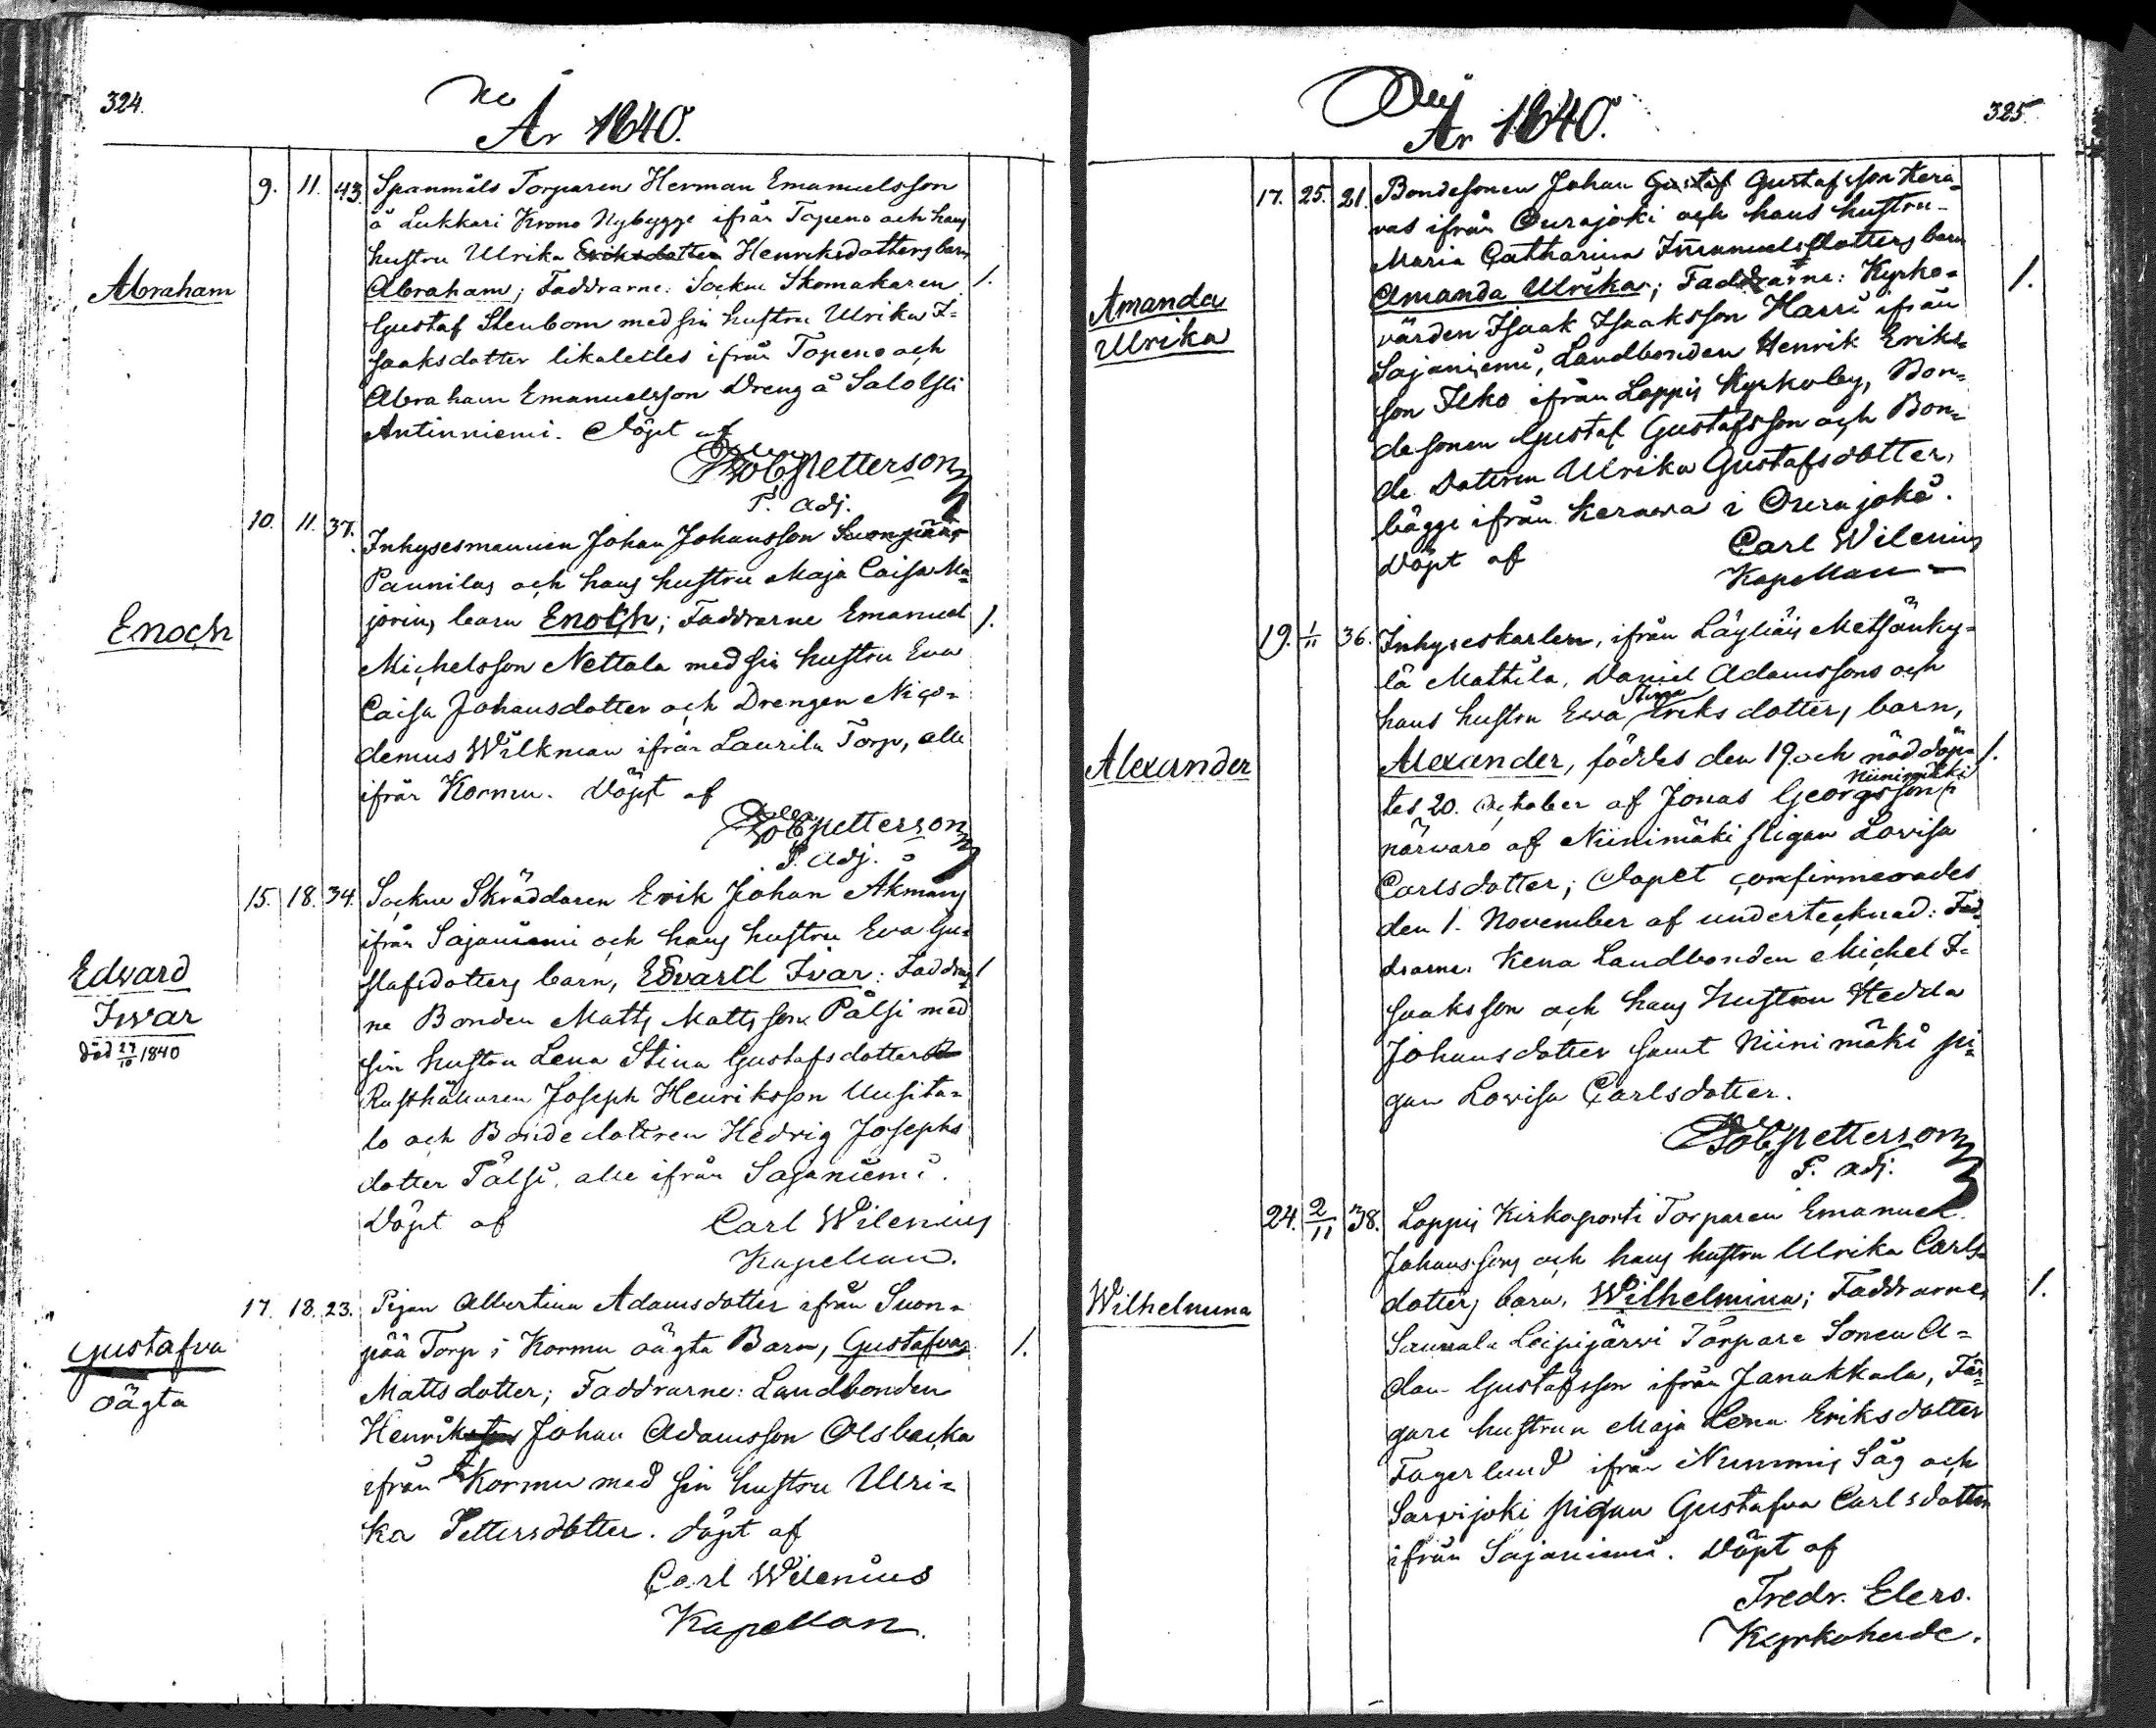 324.
År 1840.
Abraham
9. 11. 43. Spanmåls Torparen Herman Emanuelsson
å Lukkari Krono Nybygge ifrån Topeno och hans
hustru Ulrika Eriksdotter Henriksdotters barn
Abraham; Faddrarne: Sockne Skomakaren 1.
Gustaf Stenbom med sin hustru Ulrika I=
saaksdotter likaledes ifrån Topeno och
Abraham Emanuelsson Dreng å Salo
Antinniemi. Döpt af
Petterson
P. adj.
Enoch
10. 11. 37. Inhysesmannen Johan Johansson
Paunilas och hans hustru Maja Caisa Ma=
jorins barn Enoch; Faddrarne Emanuel 1.
Michelsson Nettala med sin hustru Eva
Caisa Johansdotter och Drengen Nico=
demus Wilkman ifrån Laurila Torp, alle
ifrån Kormu. Döpt af
Petterson
P. adj.
Edvard
Ivar
död 27/10 1840
15. 18. 34. Sockne Skräddaren Erik Johan Åkmans
ifrån Sajaniemi och hans hustru Eva Gu=
stafsdotters barn, Edvard Ivar: Faddrar= 1
ne Bonden Matts Mattsson Pälsi med
sin hustru Lena Stina Gustafsdotter
Rusthållaren Joseph Henriksson Uusita=
lo och Bondedottren Hedvig Josephs
dotter Pälsi, alle ifrån Sajaniemi.
Döpt af Carl Wilenius
Kapellan.
Gustafva
oägta
17. 18. 23. Pigan Albertina Adamsdotter ifrån Suon=
pää Torp i Kormu oägta Barn, Gustafva 1.
Mattsdotter; Faddrarne: Landbonden
Henriksson Johan Adamsson Alsbacka
ifrån Kormu med sin hustru Ulri=
ka Pettersdotter. döpt af
Carl Wilenius
Kapellan.
325.
År 1840.
Amanda
Ulrika
17. 25. 21. Bondesonen Johan Gustaf Gustafsson Kera=
vas ifrån Ourajoki och hans hustru
Maria Catharina Immanuelsdotters barn
Amanda Ulrika; Faddrarne: Kyrko= 1.
värden Isaak Isaaksson Harri ifrån
Sajaniemi, Landbonden Henrik Eriks=
son Ilko ifrån Loppis Kyrkoby, Bon=
desonen Gustaf Gustafsson och Bon=
de Dottren Ulrika Gustafsdotter,
bägge ifrån Kerawa i Ourajoki.
Döpt af Carl Wilenius
Kapellan
Alexander
19. 1/11 36. Inhyseskarlen, ifrån Läyliäis Metsänky=
lä Mattila, Daniel Adamssons och
hans hustru Ewa Stina Eriksdotters barn,
Alexander, föddes den 19 och nöddöp= 1.
tes 20. October af Jonas Georgsson Niinimäki i
närwaro af Niinimäki pigan Lovisa
Carlsdotter; dopet confirmerades
den 1. November af undertecknad: Fad=
drarne. Kena Landbonden Michel I=
saaksson och hans Hustru Hedda
Johansdotter samt Niinimäki pi=
gan Lovisa Carlsdotter.
Petterson
P. adj.
Wilhelmina
24. 2/11 38. Loppis Kirkoporti Torparen Emanuel
Johanssons och hans hustru Ulrika Carls=
dotters barn, Wilhelmina; Faddrarne, 1.
Saunala Leipijärwi Torpare Sonen A=
dam Gustafsson ifrån Janakkala, Fär=
gare hustrun Maja Lena Eriksdotter
Fagerlund ifrån Nummis Såg och
Sarvijoki pigan Gustafva Carlsdotter
ifrån Sajaniemi. Döpt af
Fredr. Elers.
Kyrkoherde.